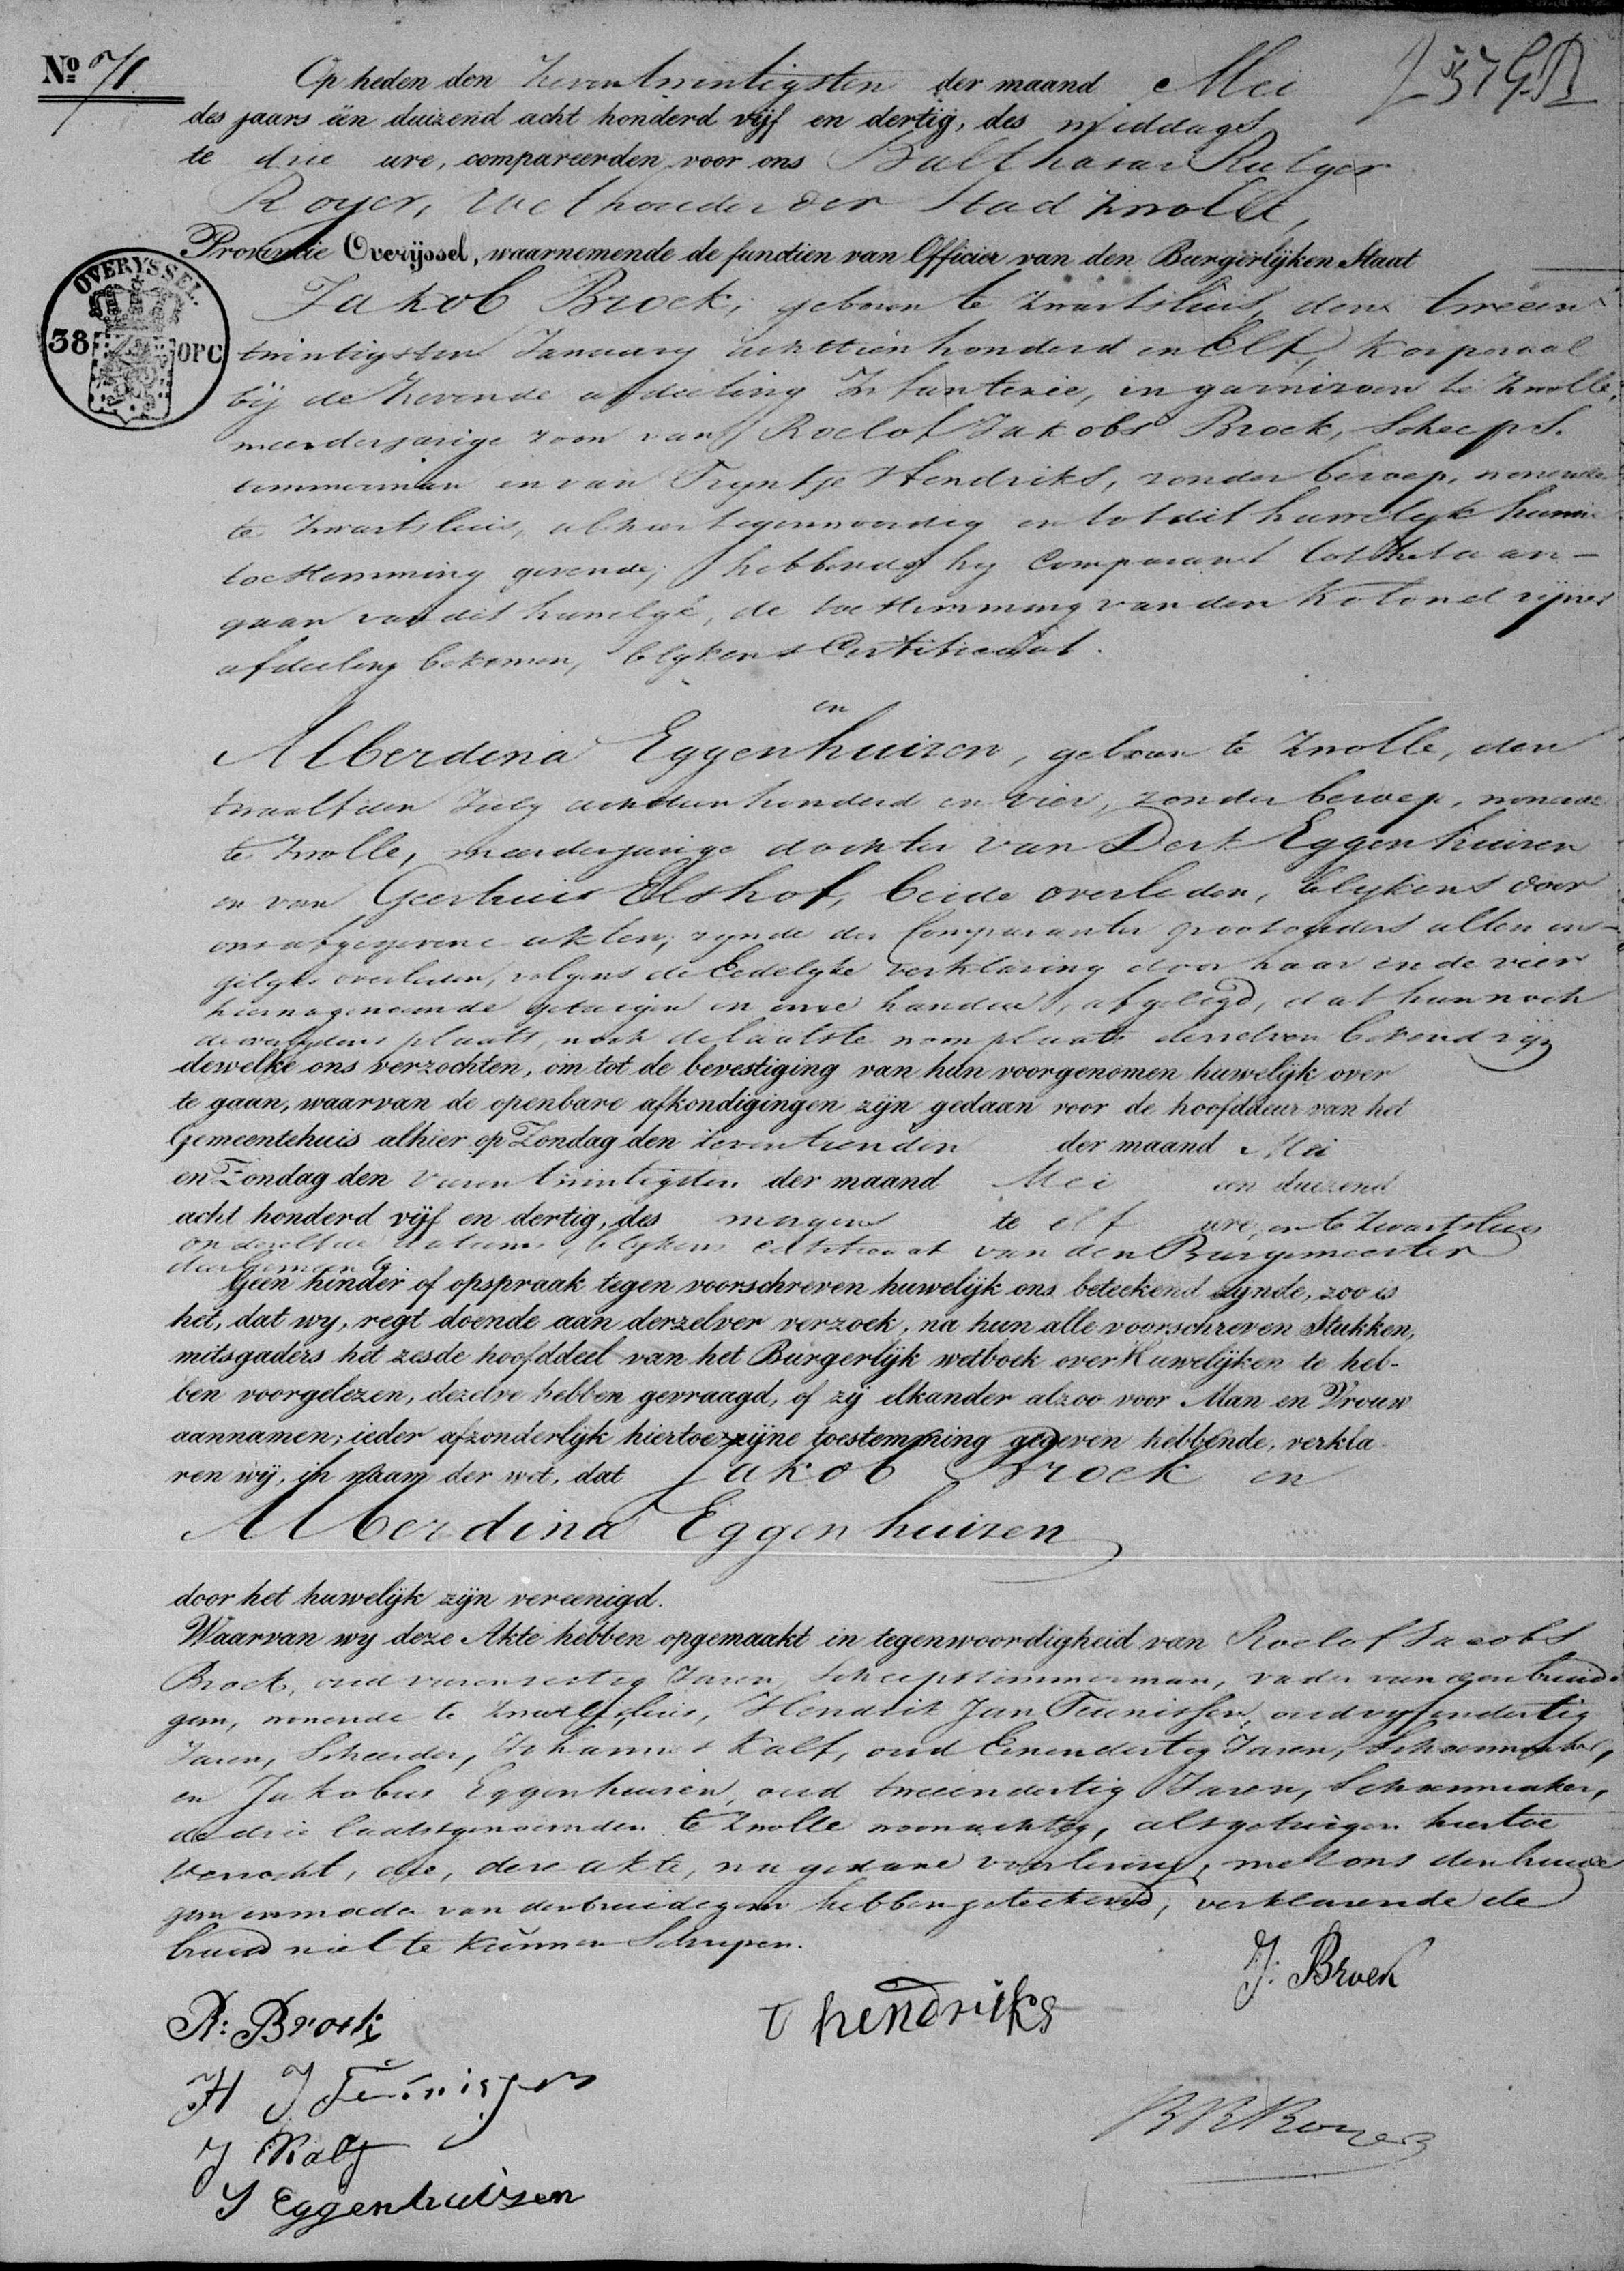 No. 71.
Op heden den Zevenentwintigsten der maand Mei
des jaars één duizend acht honderd vijf en dertig, des middags
te drie ure, compareerden voor ons Balthasar Rutger
Royer, Wethouder der Stad Zwolle,
Provincie Overijssel, waarnemende de functien van Officier van den Burgerlijken Staat
OVERYSSEL.
38 OPC
Jakob Broek, geboren te Zwartsluis, den tweeen
twintigsten January achttienhonderd en Elf, Korporaal
bij de Zevende afdeeling Infanterie, in garnizoen te Zwolle,
meerderjarige zoon van Roelof Jakobs Broek, Scheeps
timmerman en van Tryntje Hendriks, zonder beroep, wonende
te Zwartsluis, alhier tegenwoordig en tot dit huwelyk hunne
toestemming gevende; hebbende hy Comparant tot het aan-
gaan van dit huwelyk, de toestemming van den Kolonel zijner
afdeeling bekomen, blykens Certificaat.
en
Alberdina Eggenhuizen, geboren te Zwolle, den
twaalfden July achttienhonderd en vier, zonder beroep, wonende
te Zwolle, meerderjarige dochter van Derk Eggenhuizen
en van Geertruid Elshof, beide overleden, blykens door
ons afgegevene akten; zynde der Comparante grootouders allen ins-
gelyks overleden, volgens de Eedelyke verklaring door haar en de vier
hiernagenoemde getuigen in onze handen, afgelegd, dat hun noch
de overlydens plaats, noch de laatste woonplaats derzelven bekend zijn
dewelke ons verzochten, om tot de bevestiging van hun voorgenomen huwelijk over
te gaan, waarvan de openbare afkondigingen zijn gedaan voor de hoofddeur van het
Gemeentehuis alhier op Zondag den Zeventienden der maand Mei
en Zondag den Vierentwintigsten der maand Mei een duizend
acht honderd vijf en dertig, des morgens te elf ure, en te Zwartsluis
op dezelfde datums, blykens certificaat van den Burgemeester
Geen hinder of opspraak tegen voorschreven huwelijk ons beteekend zynde, zoo is
het, dat wy, regt doende aan derzelver verzoek, na hun alle voorschreven Stukken,
mitsgaders het zesde hoofddeel van het Burgerlijk wetboek over Huwelijken te heb-
ben voorgelezen, dezelve hebben gevraagd, of zij elkander alzoo voor Man en Vrouw
aannamen; ieder afzonderlijk hiertoe zijne toestemming gegeven hebbende, verkla-
ren wij, in naam der wet, dat Jakob Broek en
Alberdina Eggenhuizen
door het huwelijk zijn vereenigd.
Waarvan wy deze Akte hebben opgemaakt in tegenwoordigheid van Roelof Jacobs
Broek, oud Jaren, Scheepstimmerman, vader van den bruide
gom, wonende te Zwartsluis, Hendrik Jan Teunissen, oud vyfendertig
Jaren, Johannes Kalf, oud Eenendertig Jaren, Schoenmaker,
en Jakobus Eggenhuizen, oud tweeendertig Jaren, Schoenmaker,
de drie laatstgenoemden te Zwolle woonachtig, als getuigen hiertoe
verzocht, die, deze akte, na gedane voorlezing, met ons den bruide
gom en moeder van den bruidegom hebben geteekend, verklarende de
bruid niet te kunnen Schrijven.
J. Broek
R: Broek
T hendriks
H J Teunissen
B R Royer
J Kalf
J Eggenhuizen